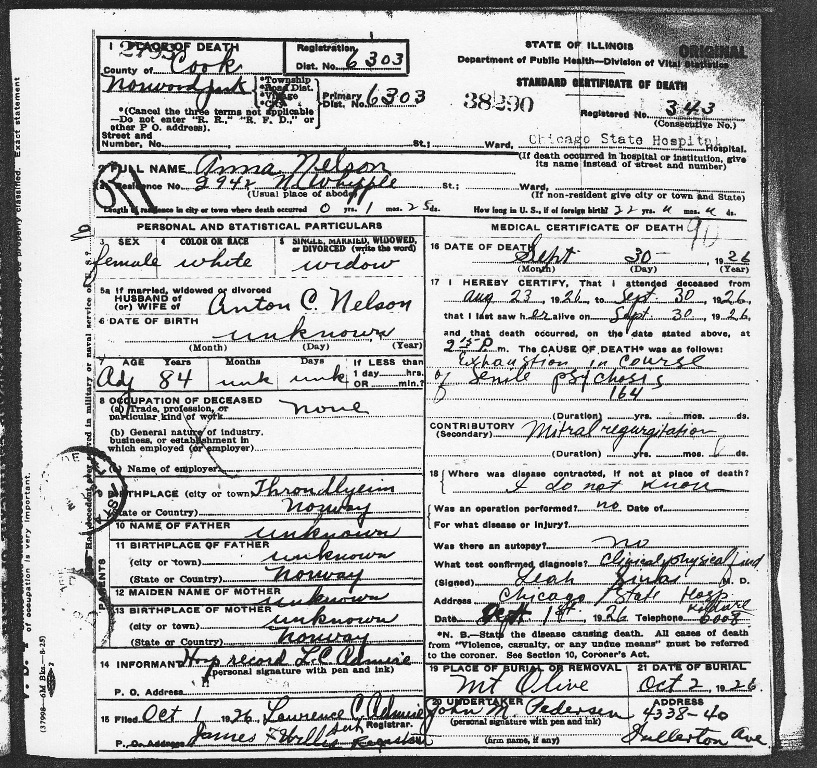 STATE OF ILLINOIS
ORIGINAL
Department of Public Health—Division of Vital Statistics
STANDARD CERTIFICATE OF DEATH
38290
Registered No. 343
(Consecutive No.)
1 PLACE OF DEATH
Registration Dist. No. 6303
County of Cook
Norwood park
*Township
*Road Dist.
*Village
*City
Primary Dist. No. 6303
*(Cancel the three terms not applicable
—Do not enter "R. R.," "R. F. D.," or
other P O. address).
Street and
Number, No. St.; Ward, Chicago State Hospital Hospital.
(If death occurred in hospital or institution, give
its name instead of street and number)
2 FULL NAME Anna Nelson
(a) Residence No. 2942 N. Whipple St.; Ward,
(Usual place of abode) (If non-resident give city or town and State)
Length of residence in city or town where death occurred 0 yrs. 1 mos. 25 ds. How long in U. S., if of foreign birth? 22 yrs. u mos. u ds.
PERSONAL AND STATISTICAL PARTICULARS
3 SEX
female
4 COLOR OR RACE
white
5 SINGLE, MARRIED, WIDOWED,
or DIVORCED (write the word)
widow
5a If married, widowed or divorced
HUSBAND of
(or) WIFE of Anton C. Nelson
6 DATE OF BIRTH
unknown
(Month) (Day) (Year)
7 AGE Years Months Days If LESS than
1 day hrs.
OR min.?
84 unk unk
8 OCCUPATION OF DECEASED
(a) Trade, profession, or
particular kind of work none
(b) General nature of industry,
business, or establishment in
which employed (or employer)
(c) Name of employer
9 BIRTHPLACE (city or town) Throndlyeim
(State or Country) Norway
PARENTS
10 NAME OF FATHER unknown
11 BIRTHPLACE OF FATHER
(city or town) unknown
(State or Country) Norway
12 MAIDEN NAME OF MOTHER unknown
13 BIRTHPLACE OF MOTHER
(city or town) unknown
(State or Country) Norway
14 INFORMANT Hosp record L. C. Admire
(personal signature with pen and ink)
P. O. Address
15 Filed Oct 1 1926 Lawrence C. Admire
Sub Registrar.
P. O. Address James F Willis Registrar
MEDICAL CERTIFICATE OF DEATH
90
16 DATE OF DEATH Sept 30 1926
(Month) (Day) (Year)
17 I HEREBY CERTIFY, That I attended deceased from
Aug 23, 1926, to Sept 30 1926,
that I last saw her alive on Sept. 30, 1926,
and that death occurred, on the date stated above, at
2 15 P m. The CAUSE OF DEATH* was as follows:
Exhaustion in course
of Senile psychosis
164
(Duration) yrs. mos. ds.
CONTRIBUTORY
(Secondary) Mitral regurgitation
(Duration) yrs. mos. ds.
18 Where was disease contracted, if not at place of death?
I do not know
Was an operation performed? no Date of
For what disease or injury?
Was there an autopsy? no
What test confirmed diagnosis? Clinical physical find
(Signed) Leah M. D.
Address Chicago State Hosp
Date Oct 1st, 1926 Telephone Kildare 6008
*N. B.—State the disease causing death. All cases of death
from "Violence, casualty, or any undue means" must be referred
to the coroner. See Section 10, Coroner's Act.
19 PLACE OF BURIAL OR REMOVAL
Mt Olive
21 DATE OF BURIAL
Oct 2, 1926
20 UNDERTAKER
John M. Pedersen
(personal signature with pen and ink)
(firm name, if any)
ADDRESS
4338-40
Fullerton Ave
(37998—AM Bks—8-25)
of occupation is very important.
properly classified. Exact statement